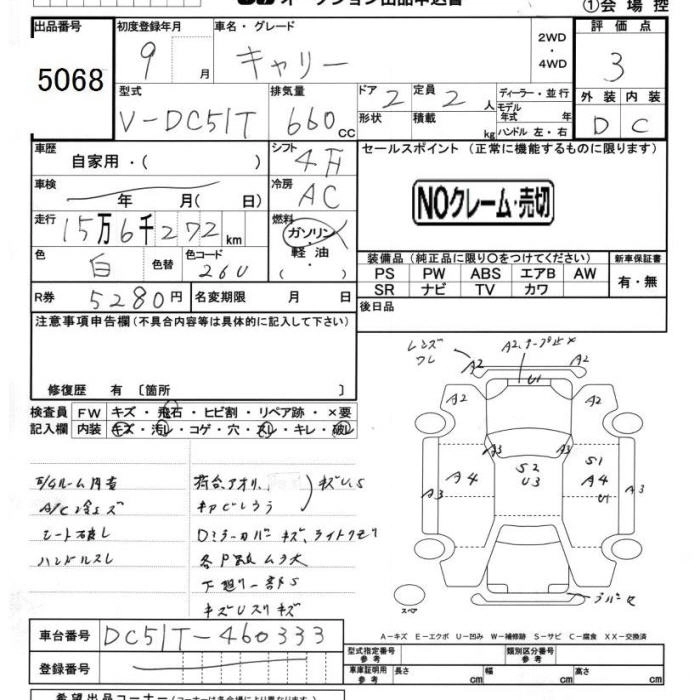 ①会 場 控
出品番号
5068
初度登録年月
9 月
車名・グレード
キャリー
2WD
・
4WD
評 価 点
3
型式
V-DC51T
排気量
660 CC
ドア
2
定員
2 人
形状
積載
kg
ディーラー・並行
モデル年式 年
ハンドル 左・右
外 装 内 装
D C
車歴
自家用・( )
シフト
4F
セールスポイント (正常に機能するものに限ります)
NOクレーム・売切
車検
年 月( 日)
冷房
AC
走行
15万6千272 km
燃料
ガソリン
・
軽 油
( )
色
白
色替
色コード
26U
装備品(純正品に限り○をつけてください)
PS PW ABS エアB AW
SR ナビ TV カワ
新車保証書
有・無
R券
5280円
名変期限 月 日
後日品
注意事項申告欄(不具合内容等は具体的に記入して下さい)
修復歴 有 〔箇所 〕
検査員
記入欄
FW キズ・飛石・ヒビ割・リペア跡・×要
内装 キズ・汚レ・コゲ・穴・スレ・キレ・破レ
レンズ
ワレ
A2
A2,テープ止メ
A2
U1
A2
A2
A3
A3
A4
S2
U3
S1
A4
U1
A3
A3
スペア
A/C冷エズ
シート破レ
ハンドルスレ
荷台,アオリ,
キズU,S
Dミラーカバーキズ,ライトクモリ
下廻リ一部S
キズUスリキズ
A－キズ E－エクボ U－凹み W－補修跡 S－サビ C－腐食 XX－交換済
車台番号
DC51T-460333
登録番号
型式指定番号
参 考
類別区分番号
参 考
車庫証明用
参 考
長さ cm
幅 cm
高さ cm
希望出品コーナー